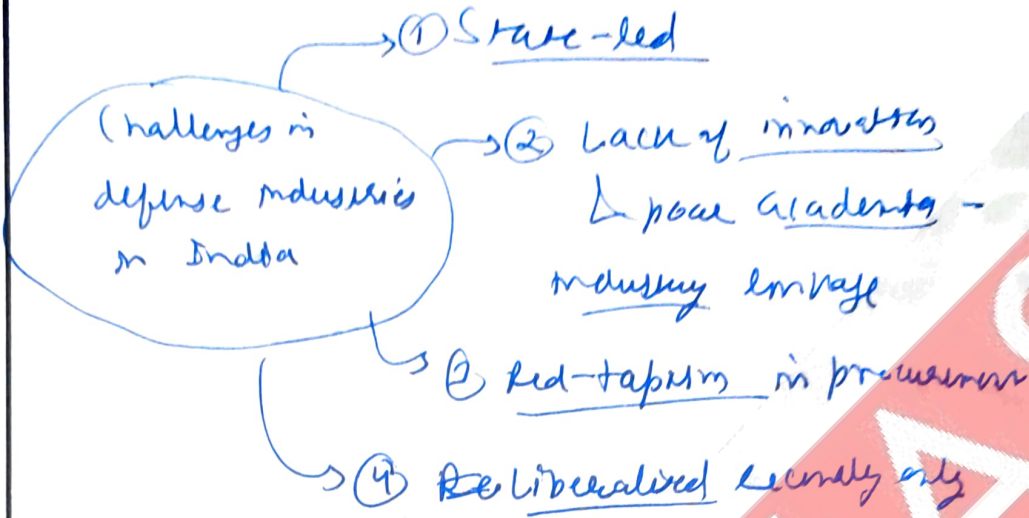 ① State-led
Challenges in
defense industries
in India
② Lack of innovation
↳ poor academia -
industry linkage
③ Red-tapism in procurement
④ Liberalised recently only